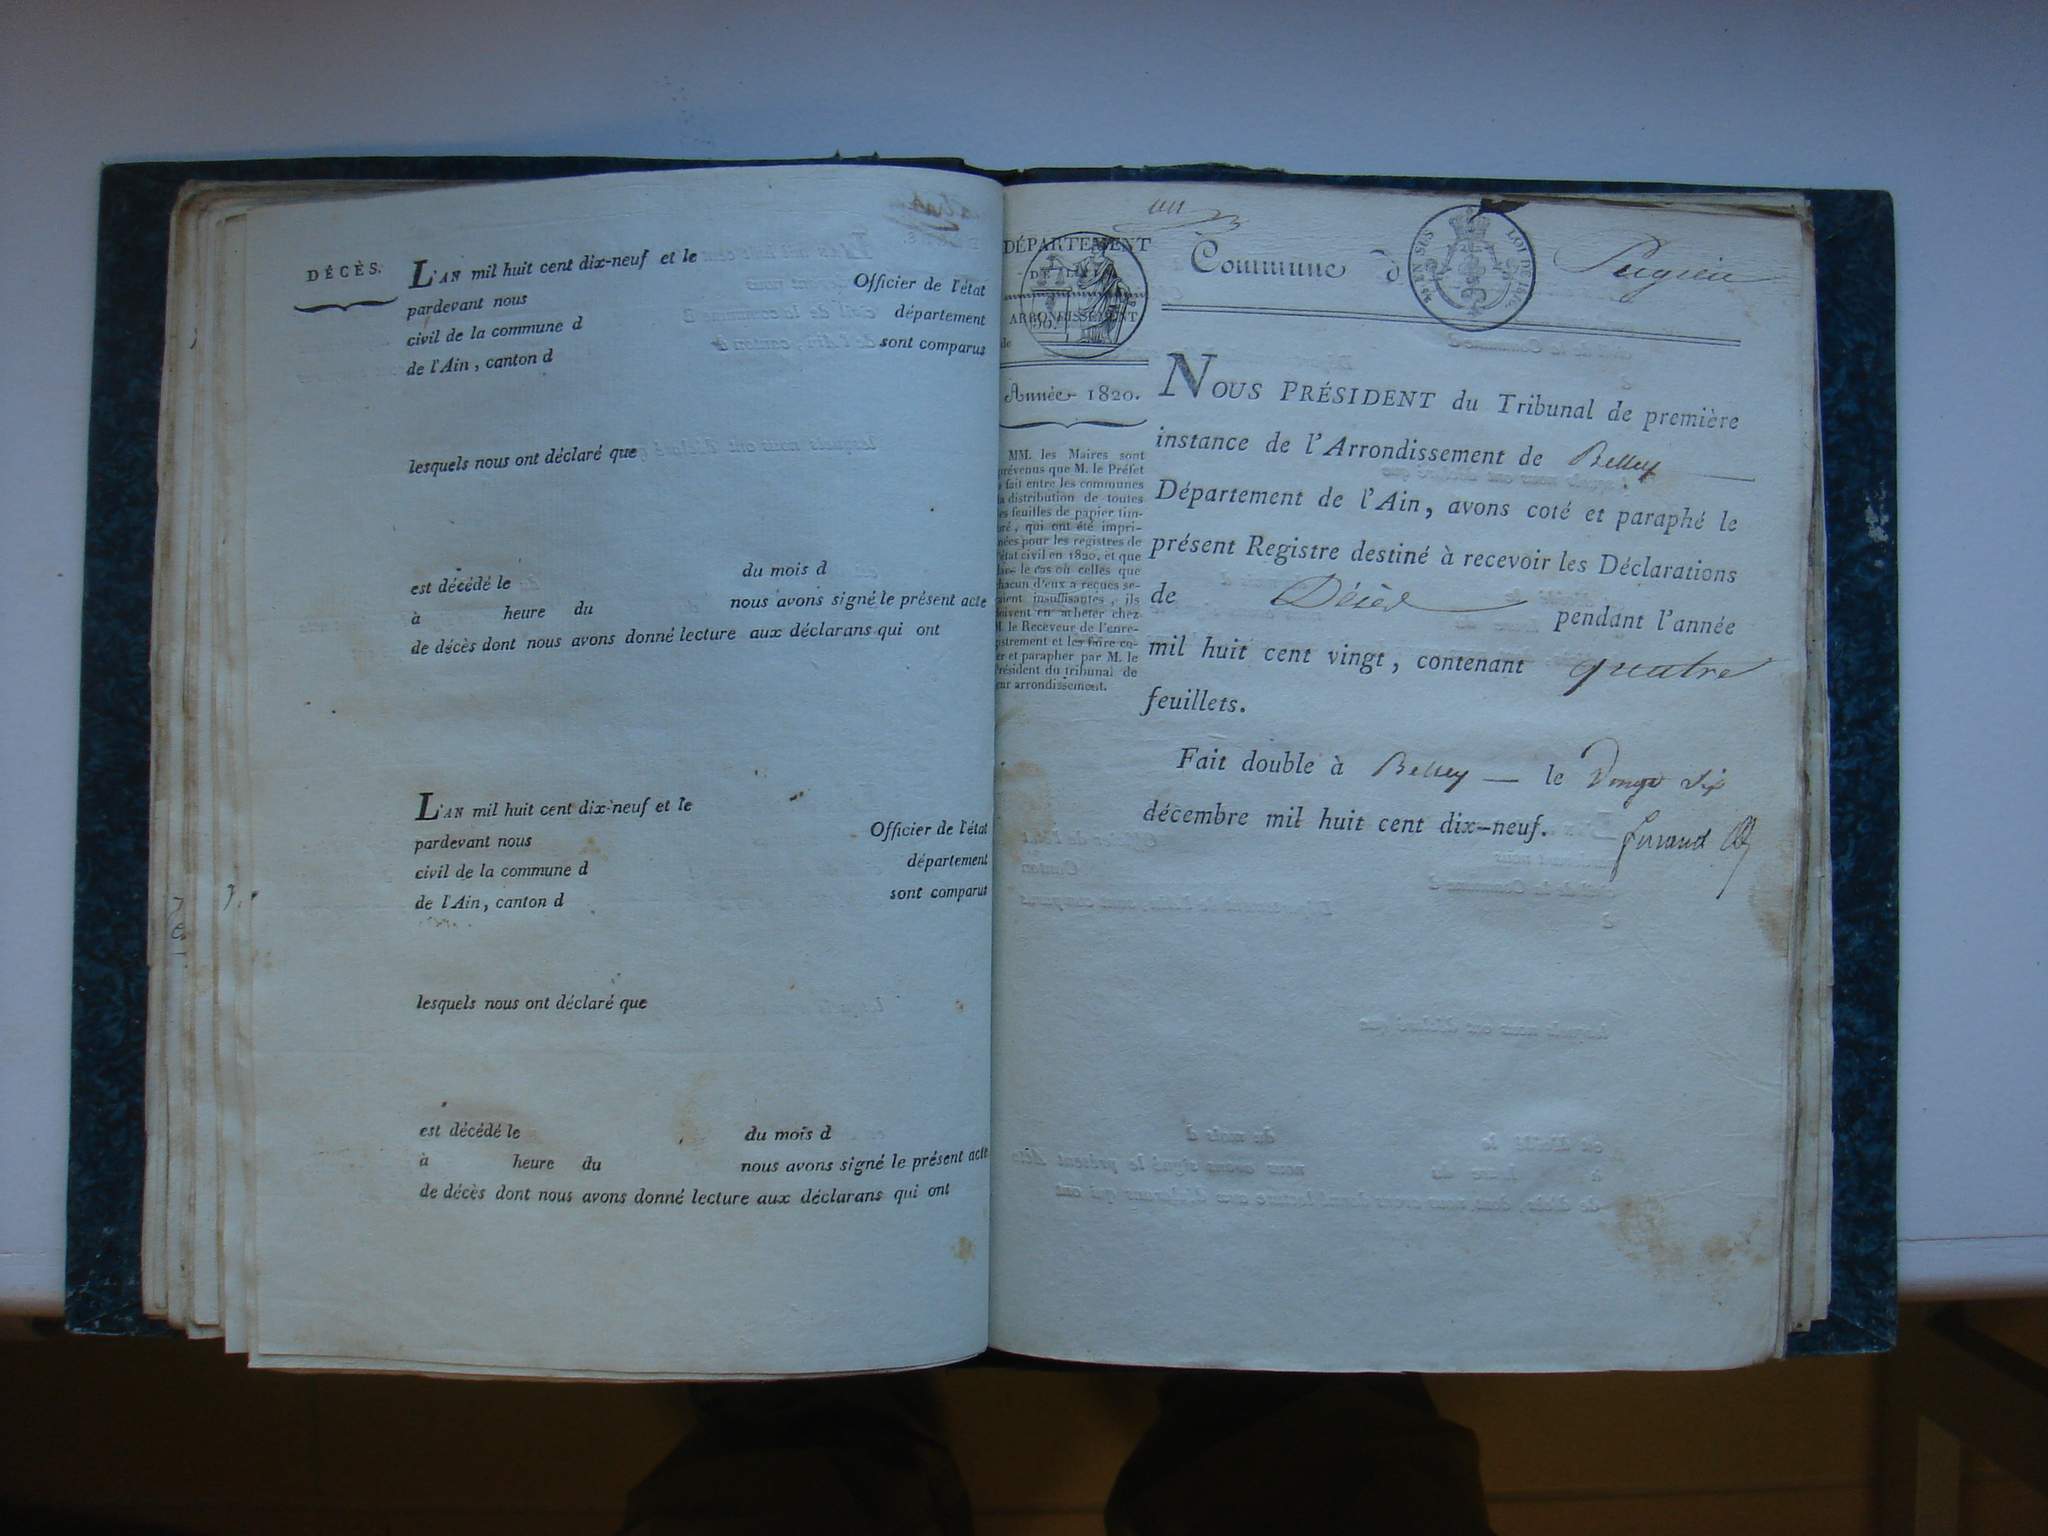 DÉCÈS.
L'AN mil huit cent dix-neuf et le
pardevant nous Officier de l'état
civil de la commune d département
de l'Ain, canton d sont comparus
lesquels nous ont déclaré que
est décédé le du mois d
à heure du nous avons signé le présent acte
de décès dont nous avons donné lecture aux déclarans qui ont
L'AN mil huit cent dix-neuf et le
pardevant nous Officier de l'état
civil de la commune d département
de l'Ain, canton d sont comparus
lesquels nous ont déclaré que
est décédé le du mois d
à heure du nous avons signé le présent acte
de décès dont nous avons donné lecture aux déclarans qui ont
un
DÉPARTEMENT
DE L'AIN
ARRONDISSEMENT
de
Année 1820.
MM. les Maires sont
prévenus que M. le Préfet
a fait entre les communes
la distribution de toutes
les feuilles de papier tim-
bré, qui ont été impri-
mées pour les registres de
l'état civil en 1820, et que
dans le cas où celles que
chacun d'eux a reçues se-
raient insuffisantes, ils
doivent en acheter chez
M. le Receveur de l'enre-
gistrement et les faire co-
ter et parapher par M. le
Président du tribunal de
leur arrondissement.
Commune d Pugieu
EN SUS LOI DE 1816.
NOUS PRÉSIDENT du Tribunal de première
instance de l'Arrondissement de Belley
Département de l'Ain, avons coté et paraphé le
présent Registre destiné à recevoir les Déclarations
de Décès pendant l'année
mil huit cent vingt, contenant quatre
feuillets.
Fait double à Belley le
décembre mil huit cent dix-neuf.